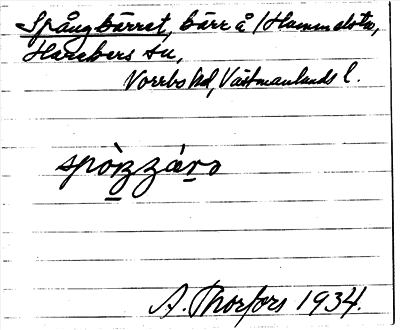 Spångkärret, kärr å Hammelsta,
Harebers sn,
Norrbo hd, Västmanlands l.
A. Thorfors 1934.